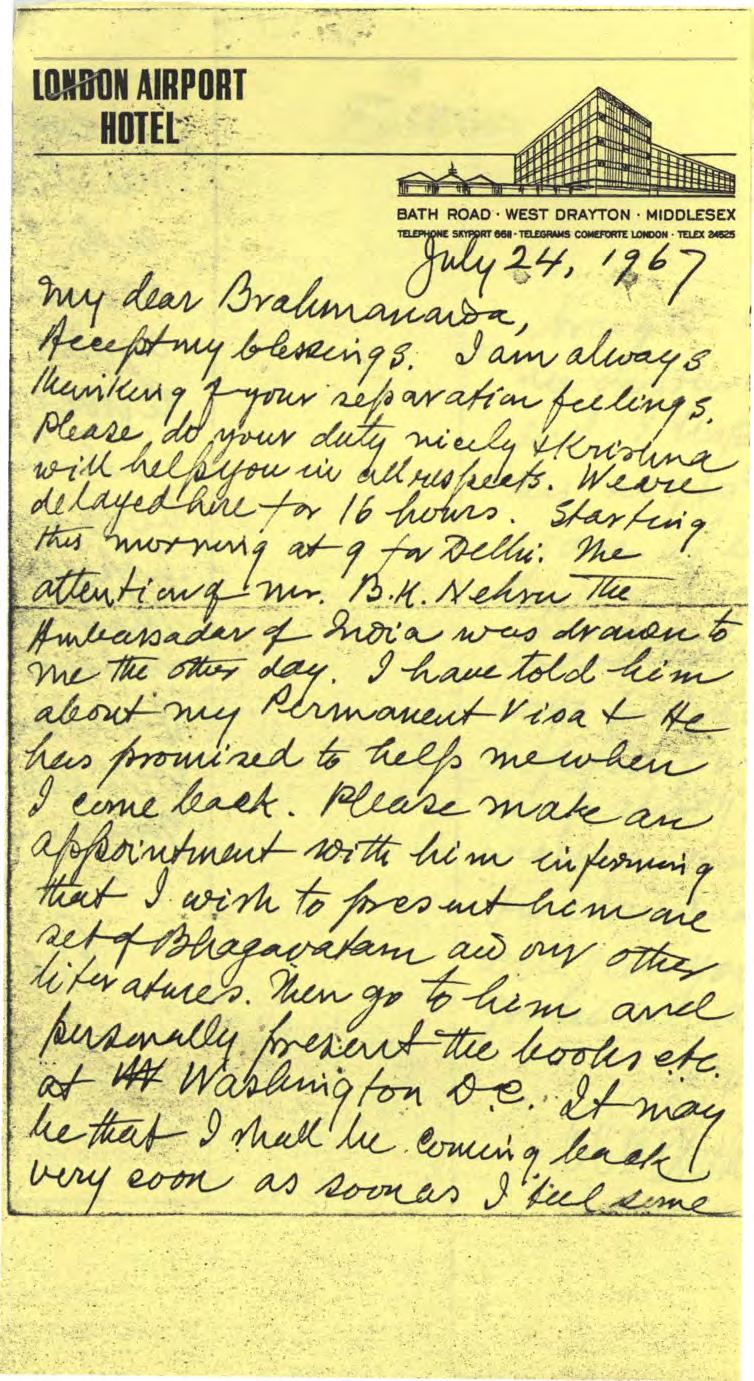 LONDON AIRPORT
HOTEL
BATH ROAD · WEST DRAYTON · MIDDLESEX
TELEPHONE SKYPORT 6611 · TELEGRAMS COMEFORTE LONDON · TELEX 24525
July 24, 1967
My dear Brahmananda,
Accept my blessings. I am always
thinking of your separation feelings.
Please do your duty nicely & Krishna
will help you in all respects. We are
delayed here for 16 hours. Starting
this morning at 9 for Delhi. The
attention of Mr. B.K. Nehru The
Ambassador of India was drawn to
me the other day. I have told him
about my Permanent Visa & He
has promised to help me when
I come back. Please make an
appointment with him informing
that I wish to present him one
set of Bhagavatam and our other
literatures. Then go to him and
personally present the books etc.
at Washington D.C. It may
be that I shall be coming back
very soon as soon as I feel some